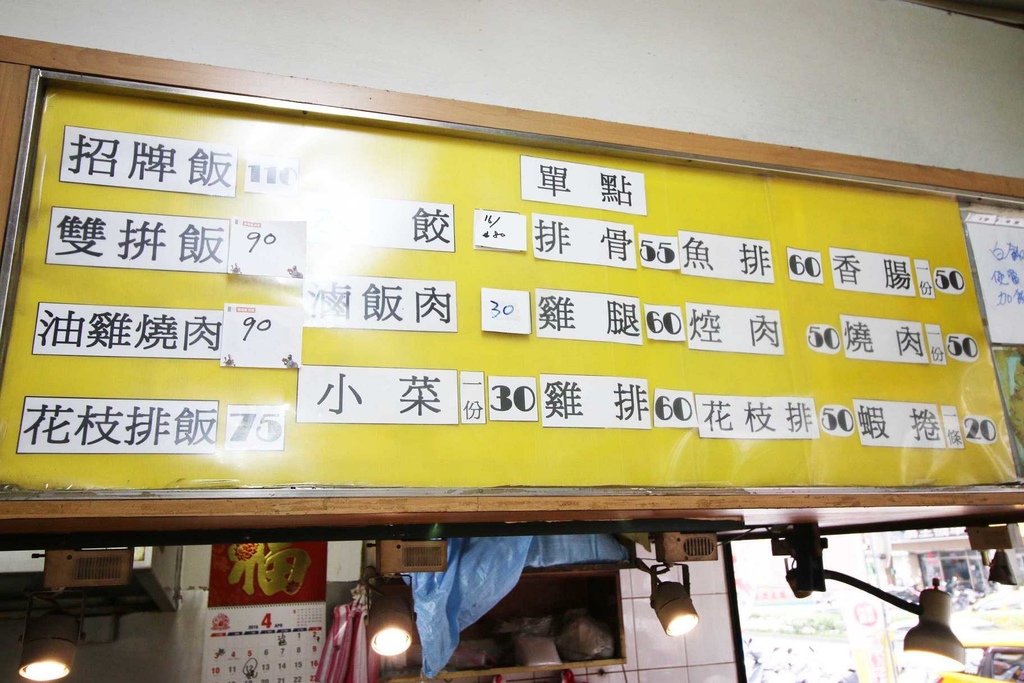 招牌飯 110
單點
雙拼飯 90
餃
排骨 55 魚排 60 香腸 一份 50
油雞燒肉 90
滷飯肉 30
雞腿 60 焢肉 50 燒肉 一份 50
花枝排飯 75
小菜 一份 30
雞排 60 花枝排 50 蝦捲 一條 20
福
4